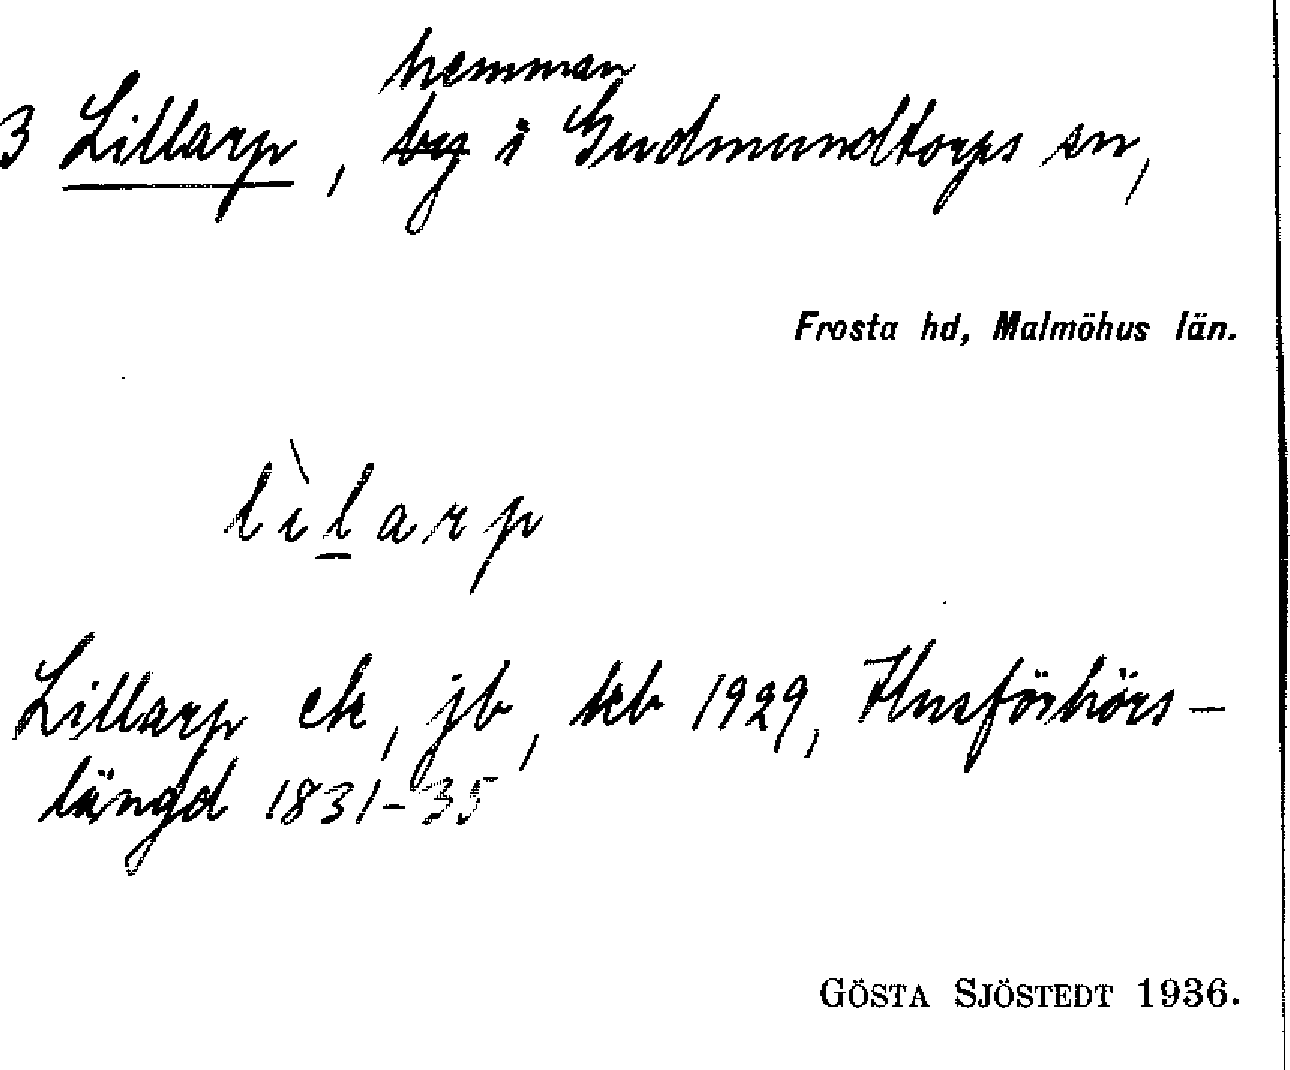 hemman
3 Lillarp, by i Gudmundtorps sn,
Frosta hd, Malmöhus län.
lìlarp
Lillarp ek, jb, kb 1929, Husförhörs-
längd 1831-35
GÖSTA SJÖSTEDT 1936.